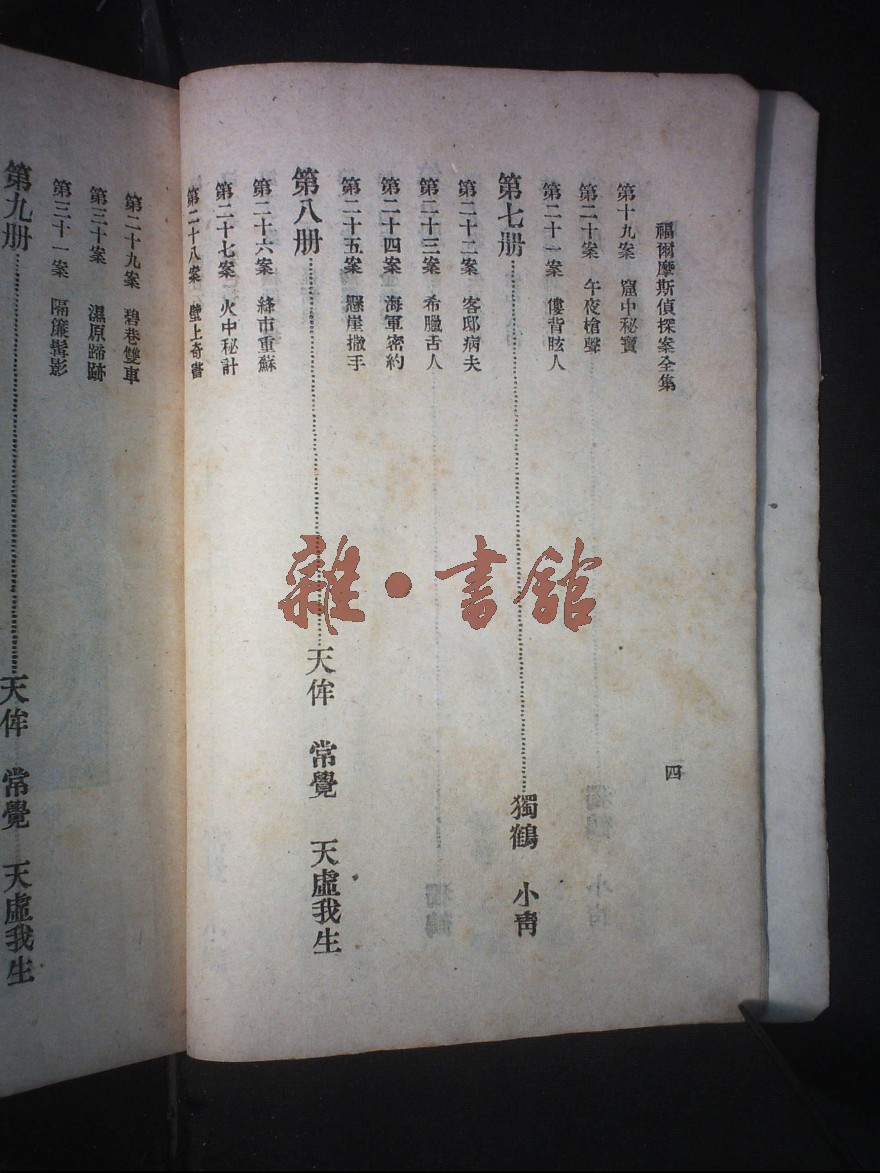 福爾摩斯偵探案全集
四
第十九案 窟中秘寶
第二十案 午夜槍聲
第二十一案 僂背眩人
第七册 獨鶴 小青
第二十二案 客邸病夫
第二十三案 希臘舌人
第二十四案 海軍密約
第二十五案 懸崖撒手
第八册 天侔 常覺 天虛我生
第二十六案 絳市重蘇
第二十七案 火中秘計
第二十八案 壁上奇書
第二十九案 碧巷雙車
第三十案 濕原蹄跡
第三十一案 隔簾髯影
第九册 天侔 常覺 天虛我生
雜·書館